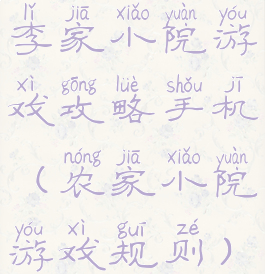 lǐ jiā xiǎo yuàn yóu
李家小院游
xì gōng lüè shǒu jī
戏攻略手机
nóng jiā xiǎo yuàn
（农家小院
yóu xì guī zé
游戏规则）